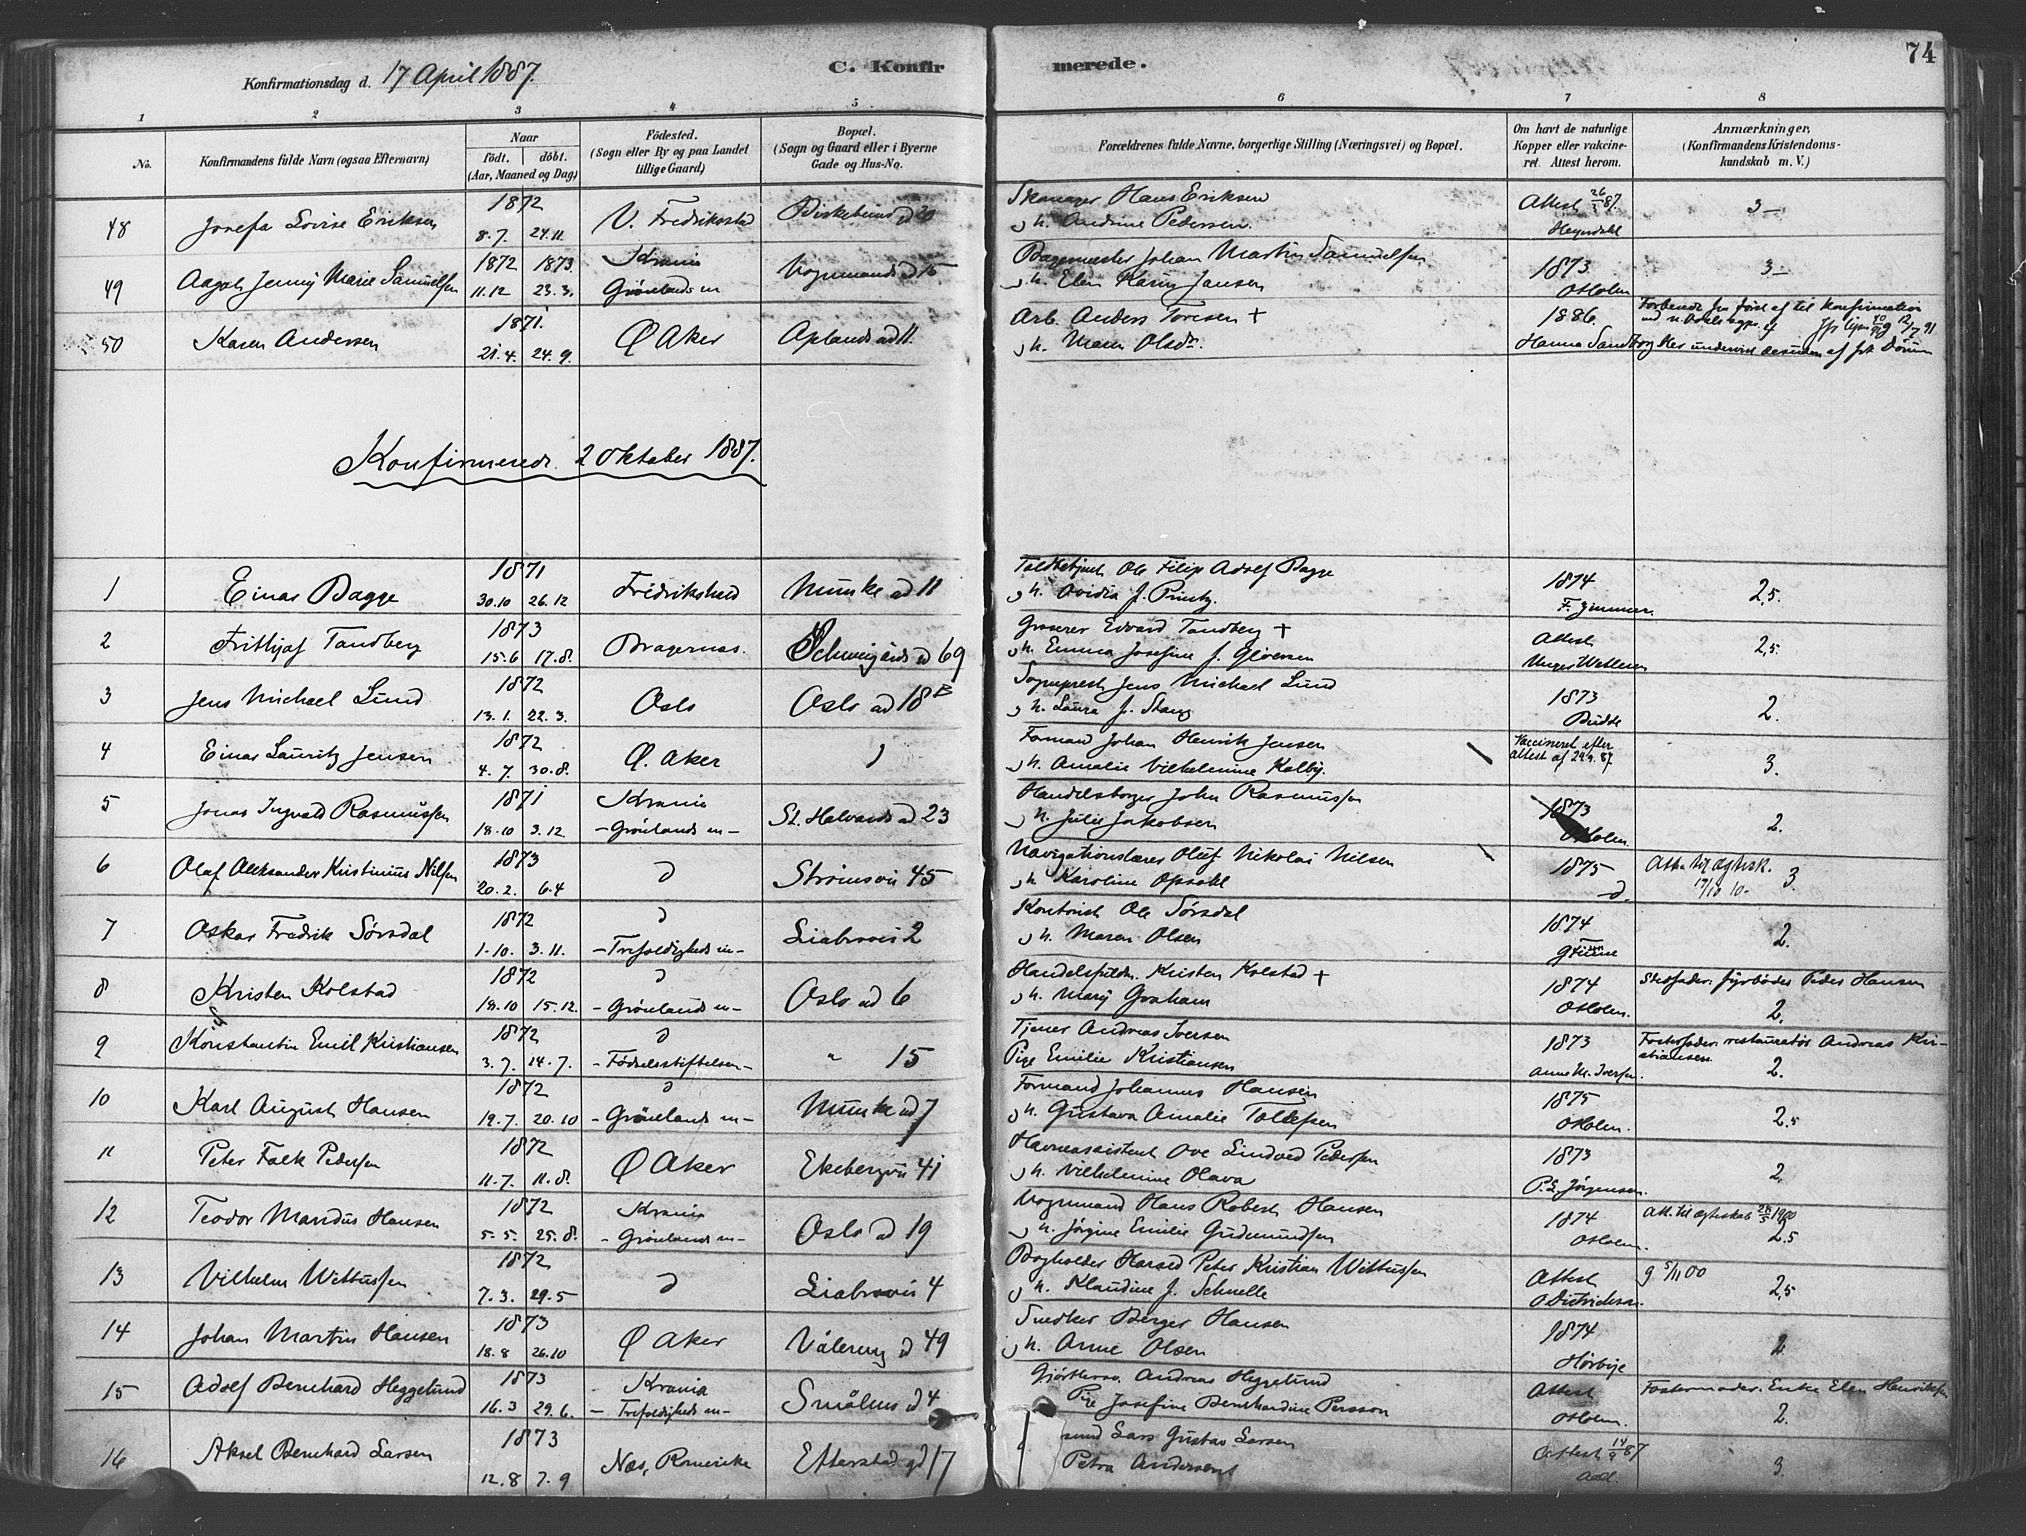 74
Konfirmationsdag d. 17 April 1887.
C. Konfirmerede.
1 2 3 4 5 6 7 8
No.
Konfirmandens fulde Navn (ogsaa Efternavn)
Naar
født. døbt.
(Aar, Maaned og Dag)
Födested.
(Sogn eller By og paa Landet
tillige Gaard)
Bopæl.
(Sogn og Gaard eller i Byerne
Gade og Hus-No.
Forældrenes fulde Navne, borgerlige Stilling (Næringsvei) og Bopæl.
Om havt de naturlige
Kopper eller vakcine-
ret. Attest herom.
Anmærkninger,
(Konfirmandens Kristendoms-
kundskab m. V.)
48 Josefa Lovise Eriksen 1872 8.7. 24.11. V. Fredrikstad
Hans Eriksen
h. Andrine Pedersen.
Attest 87 3
49 Aagot Jenny Marie Samuelsen 1872 1873. 11.12 23.3. Krania Grønlands m Vognmands 15
Bagermester Johan Martin Samuelsen
h. Elen Karin Jansen
1873 O Holm 3
50 Karen Andersen 1871. 21.4. 24.9. Ø Aker Oplands gd 11.
Arb. Anders Toresen +
h. Maren Olsdr.
1886. Hanna Sandberg
Konfirmerede 2 Oktober 1887.
1 Einar Bagge 1871 30.10 26.12 Fredrikshald Munke gd 11
Ole Filip Adolf Bagge
h. Ovidia J. Printz.
1874 2,5.
2 Frithjof Tandberg 1873 15.6 17.8. Bragernæs. Schweigårds gd 69
Grosserer Edvard Tandberg +
h. Emma Josefine J. Gløersen
Attest 2,5.
3 Jens Michael Lund 1872 13.1. 22.3. Oslo Oslo gd 18 B
Sogneprest Jens Michael Lund
h. Laura J. Stang
1873 Budde 2.
4 Einar Lauritz Jensen 1872 4.7. 30.8. Ø. Aker
Formand Johan Henrik Jensen
h. Amalie Vilhelmine Kolby.
Vaccineret efter
attest af 29.9.87. 3.
5 Jonas Ingvald Rasmussen 1871 18.10 3.12 Krania - Grønlands m - St. Halvards gd 23
Handelsborger John Rasmussen
h. Julie Jakobsen
1873 O Holm 2.
6 Olaf Aleksander Kristinius Nilsen 1873 20.2. 6.4 Strømsvei 45
Navigationslærer Oluf Nikolai Nilsen
h. Karoline Opsahl
1875 3.
7 Oskar Fredrik Sørsdal 1872 1.10. 3.11. - Trefoldigheds m - Liabrovei 2
Kontorist Ole Sørsdal
h. Maren Olsen
1874 2.
8 Kristen Kolstad 1872 18.10 15.12. - Grønlands m - Oslo gd 6
Handelsfuldm. Kristen Kolstad +
h. Mary Graham
1874 O Holm. Stedfader: fyrbøder Peder Hansen 2.
9 Konstantin Emil Kristiansen 1872 3.7. 14.7. - Fødselsstiftelsen - " 15
Tjener Andreas Iversen
Pige Emilie Kristiansen
1873 Anne M. Iversen. Fosterfader: restauratør Andreas Kri-
stiansen. 2.
10 Karl August Hansen 1872 19.7. 20.10 - Grønlands m - Munke gd 7
Formand Johannes Hansen
h. Gustava Amalie Tollefsen
1875 O Holm. 2.5
11 Peter Falk Pedersen 1872 11.7. 11.8. Ø Aker Ekebergvei 41
Havneassistent Ove Lindved Pedersen
h. Vilhelmine Olava
1873 P. L. Jørgensen. 2.
12 Teodor Maridus Hansen 1872 5.5. 25.8. Krania - Grønlands m - Oslo gd 19
Vognmand Hans Robert Hansen
h. Jørgine Emilie Gudmundsen
1874 O Holm. Att. til ægteskab 1900 2.5
13 Vilhelm Wittussen 1872 7.3. 29.5 Liabrovei 4
Bogholder Harald Peter Kristian Wittussen
h. Klaudine J. Schnelle
Attest g 5/11 00 2,5
14 Johan Martin Hansen 1873 18.8 26.10 Ø Aker Vålereng gd 49
Snedker Berger Hansen
h. Anne Olsen
1874 Hørbye 2
15 Adolf Bernhard Heggelund 1873 16.3 29.6. Krania - Trefoldigheds m - Smålens gd 4
Andreas Heggelund
Pige Josefine Bernhardine Persson
Attest O Holm. Fostermoder: Enke Elen Henriksen 2.
16 Aksel Bernhard Larsen 1873 12.8 7.9 Næs, Romerike Etterstad gd 17
Lars Gustav Larsen
Petra Andersen
Attest 14/9 87 3.